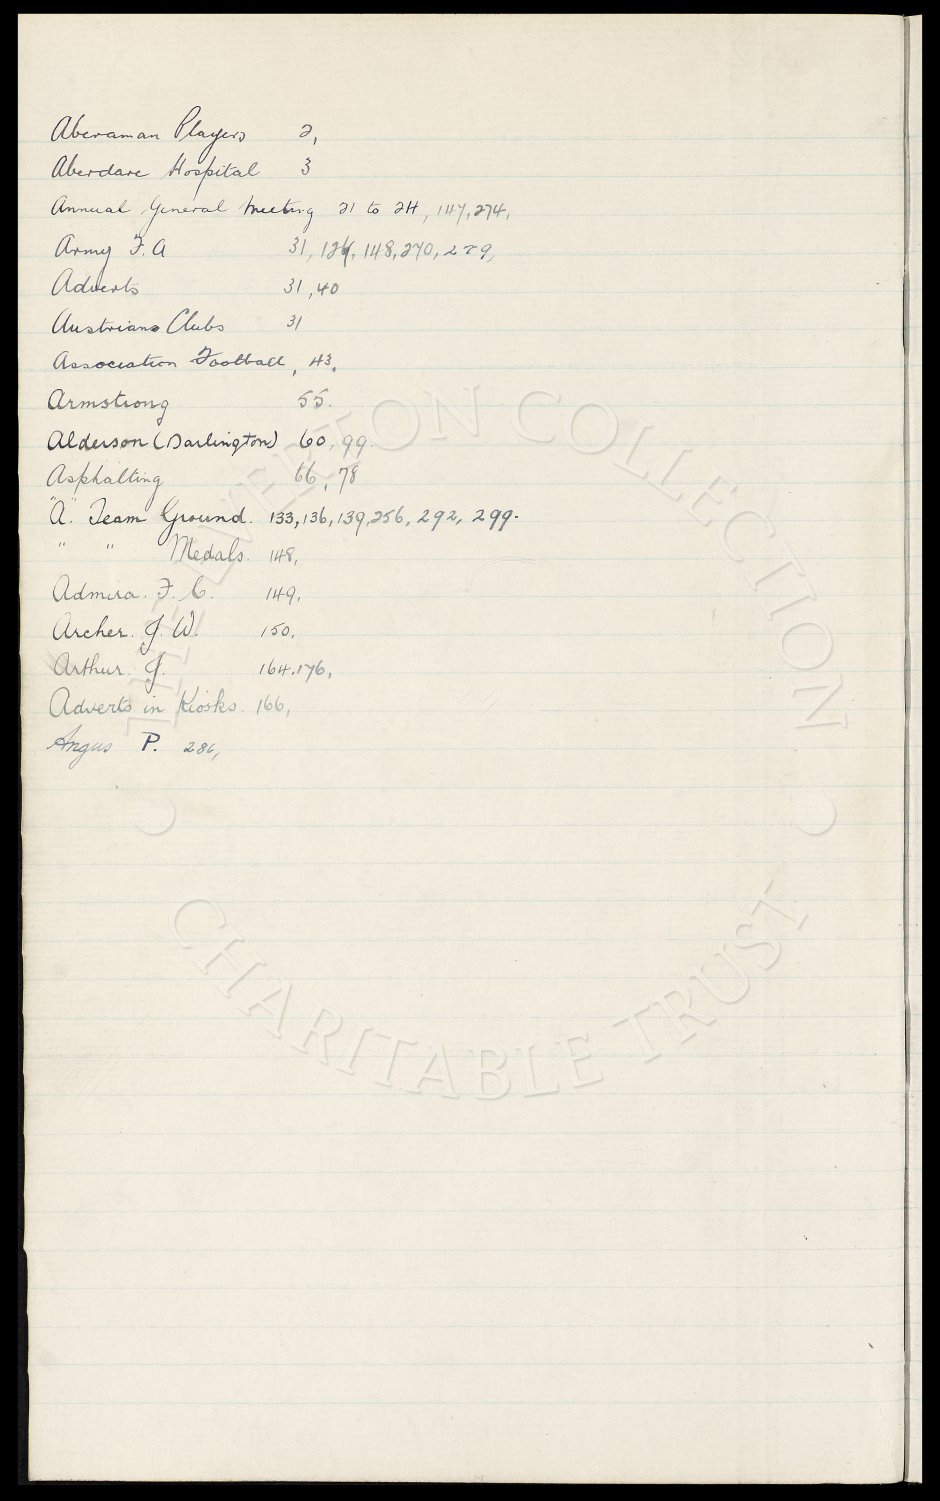 Aberaman Players 2,
Aberdare Hospital 3
Annual General Meeting 21 to 24, 147, 274,
Army F.A 31, 124, 148, 270, 279,
Adverts 31, 40
Austrians Clubs 31
Association Football, 43.
Armstrong 55.
Alderson (Darlington) 60, 99.
Asphalting 66, 78
"A" Team Ground. 133, 136, 139, 256, 292, 299.
" " Medals. 148,
Admira. F. C. 149,
Archer. J. W. 150,
Arthur. J. 164, 176,
Adverts in Kiosks. 166,
Angus P. 286,
THE EVERTON COLLECTION
CHARITABLE TRUST